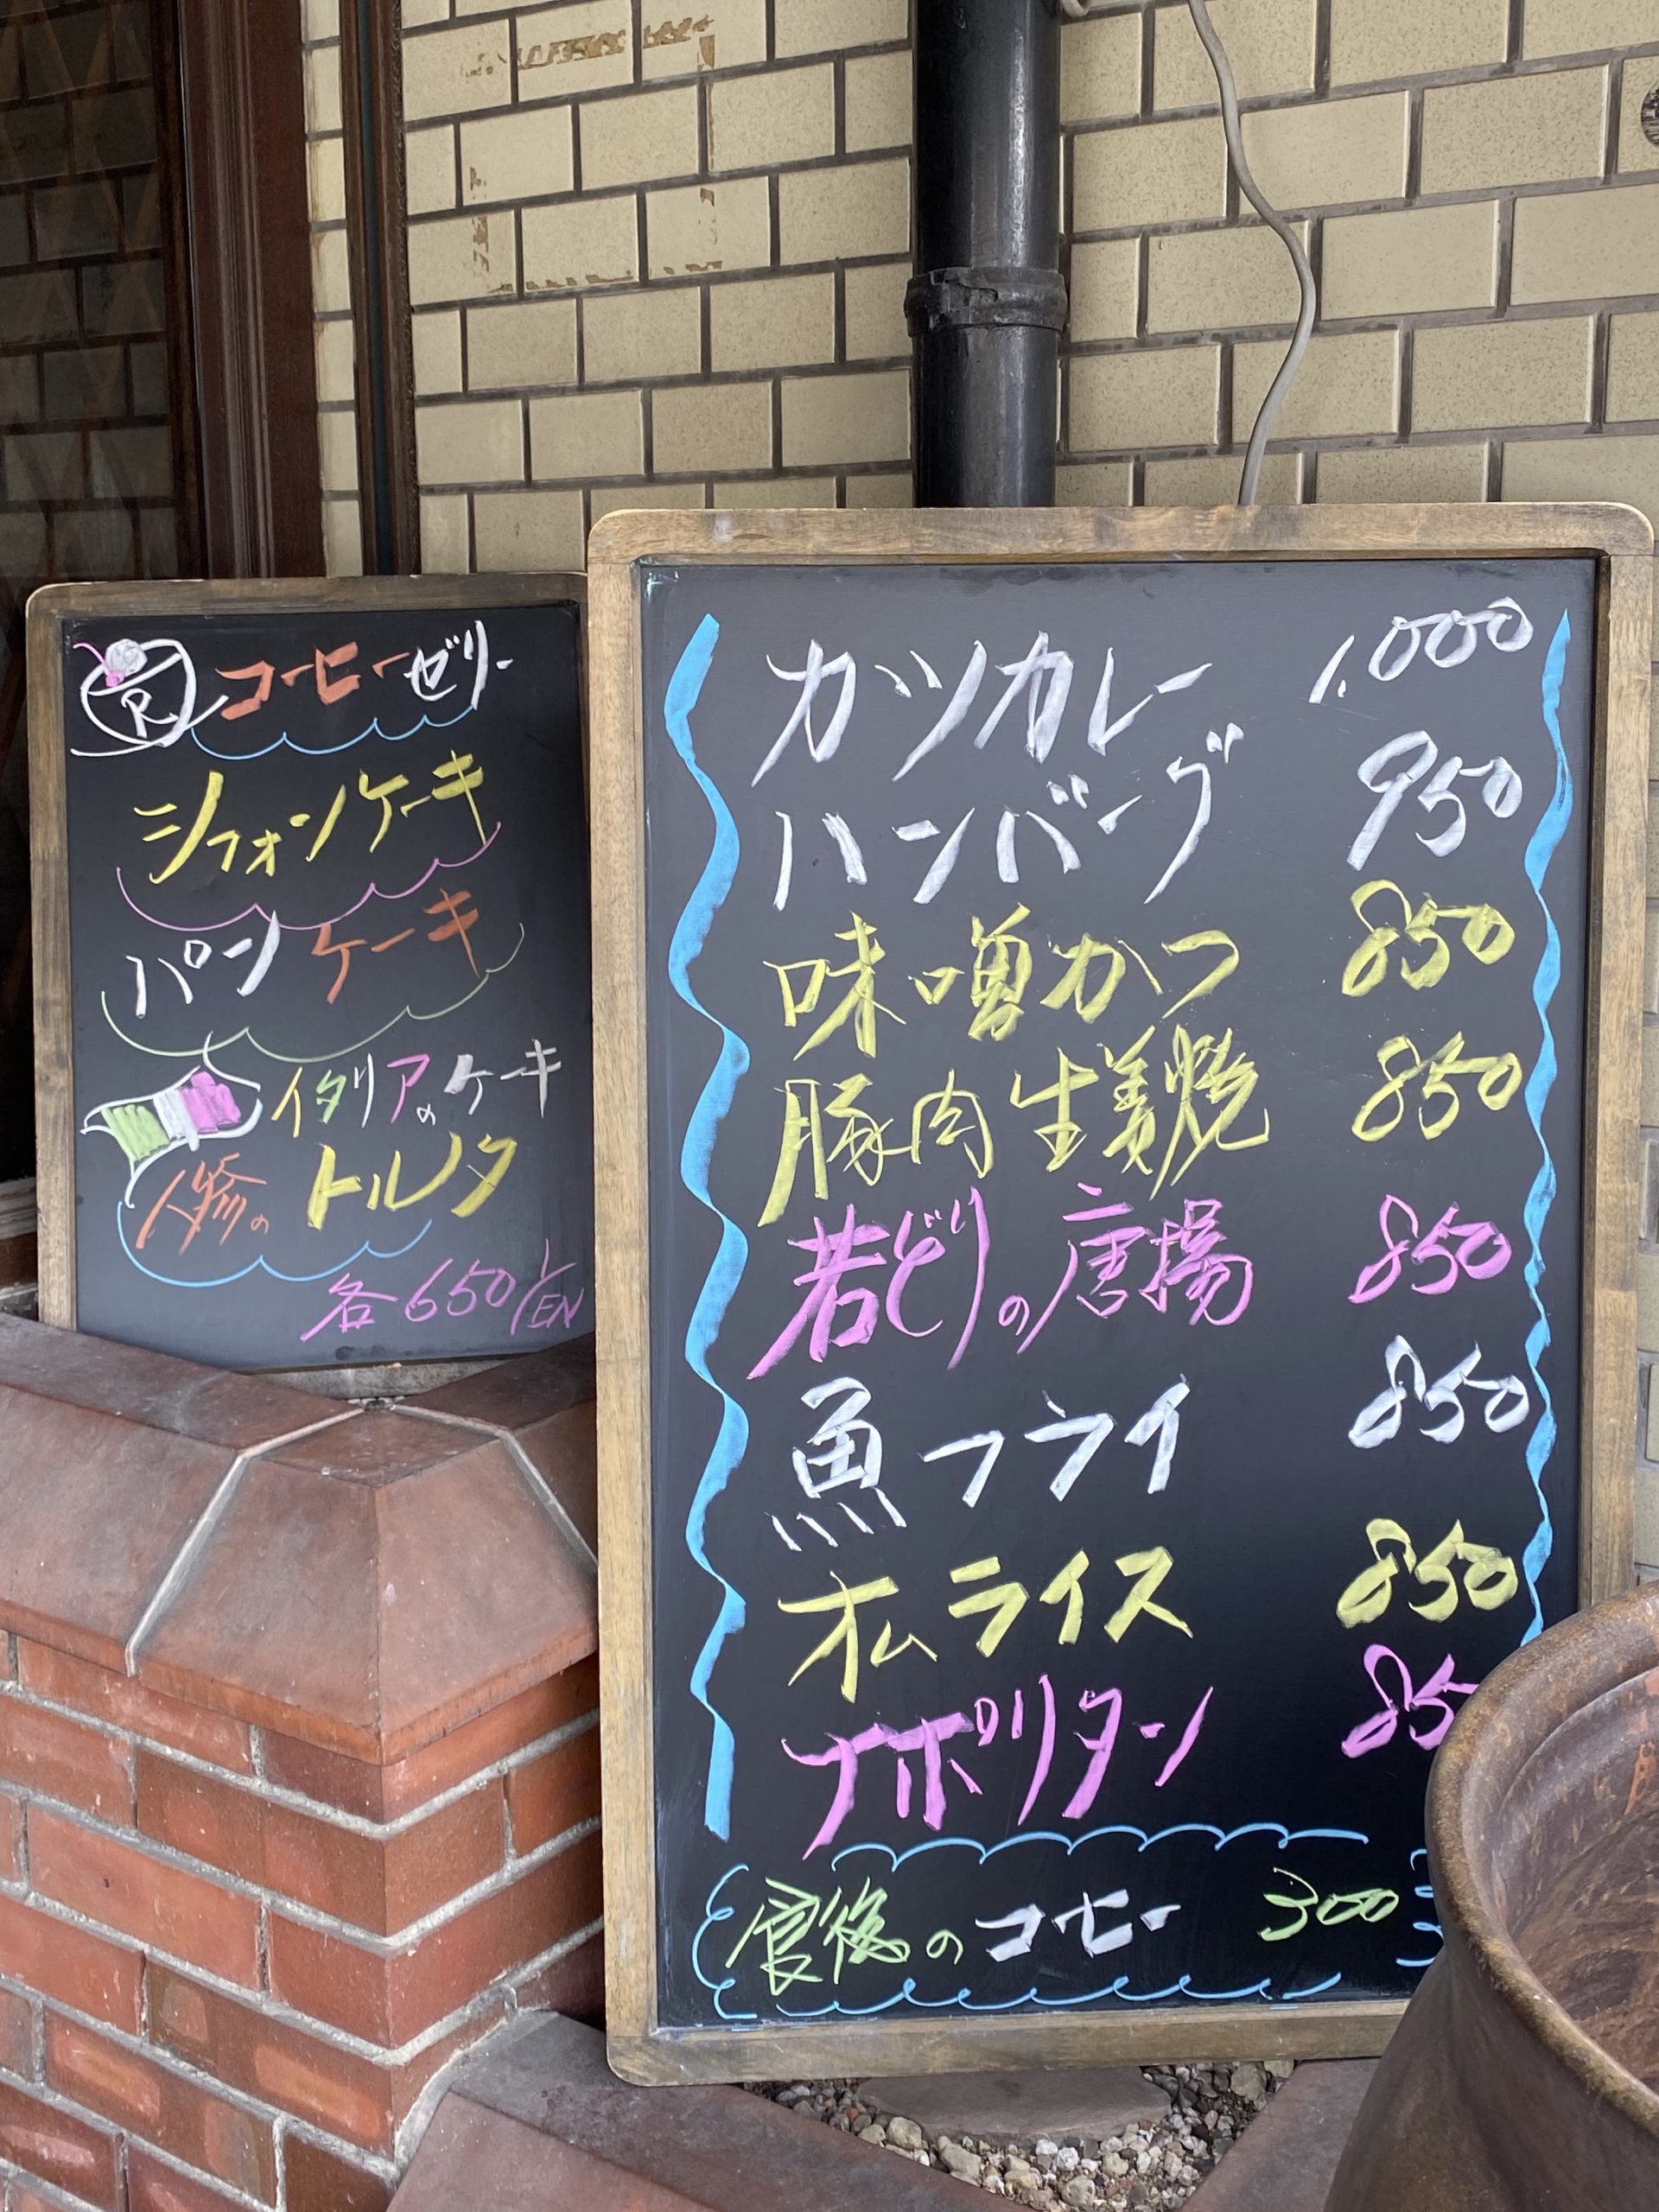 R コーヒーゼリー
シフォンケーキ
パンケーキ
イタリアのケーキ
人参のトルタ
各650 EN
カツカレー 1,000
ハンバーグ 950
味噌かつ 850
豚肉生姜焼 850
若どりの唐揚 850
魚フライ 850
オムライス 850
ナポリタン 85
食後のコーヒー 300